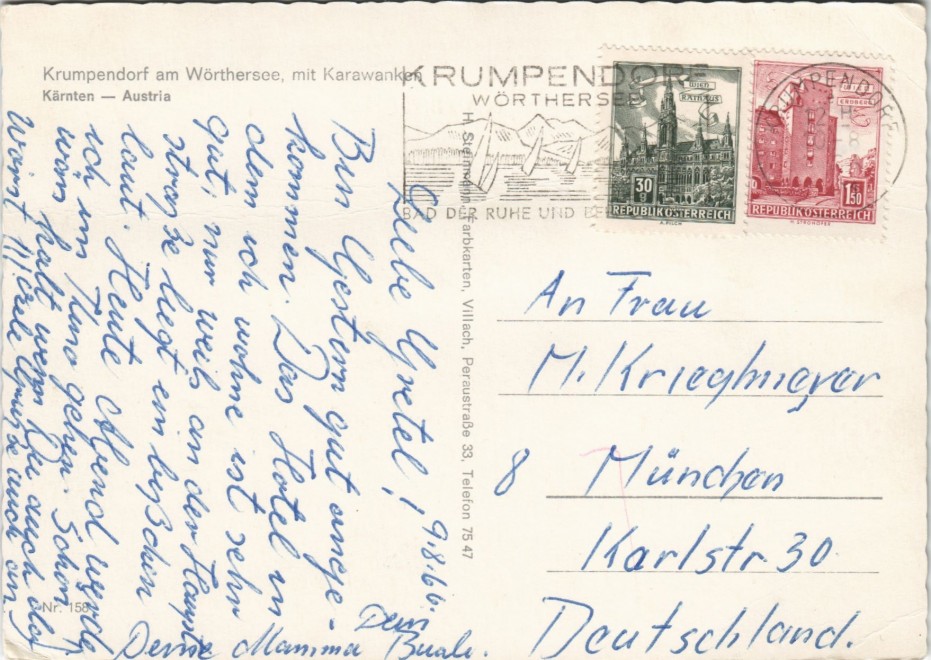 Krumpendorf am Wörthersee, mit Karawanken
Kärnten — Austria
KRUMPENDORF
WÖRTHERSEE
BAD DER RUHE UND DER
WIEN
RATHAUS
30
g
REPUBLIK ÖSTERREICH
1.50
REPUBLIK ÖSTERREICH
KRUMPENDORF
H. Steinmann, Farbkarten, Villach, Peraustraße 33, Telefon 75 47
9.8.66.
Liebe Gretel!
Bin Gestern gut ange-
kommen. Das Hotel in
dem ich wohne ist sehr
gut, nur weils an der Haupt
straße liegt ein bißchen
laut. Heute Abend werde
ich ins Kino gehen. Schön
wärs halt wenn Du auch da
wärst!!! Viele Grüße auch an
Deine Mamma
Dein
Buale.
An Frau
M. Krieglmeyer
8 München
Karlstr. 30
Deutschland.
Nr. 158